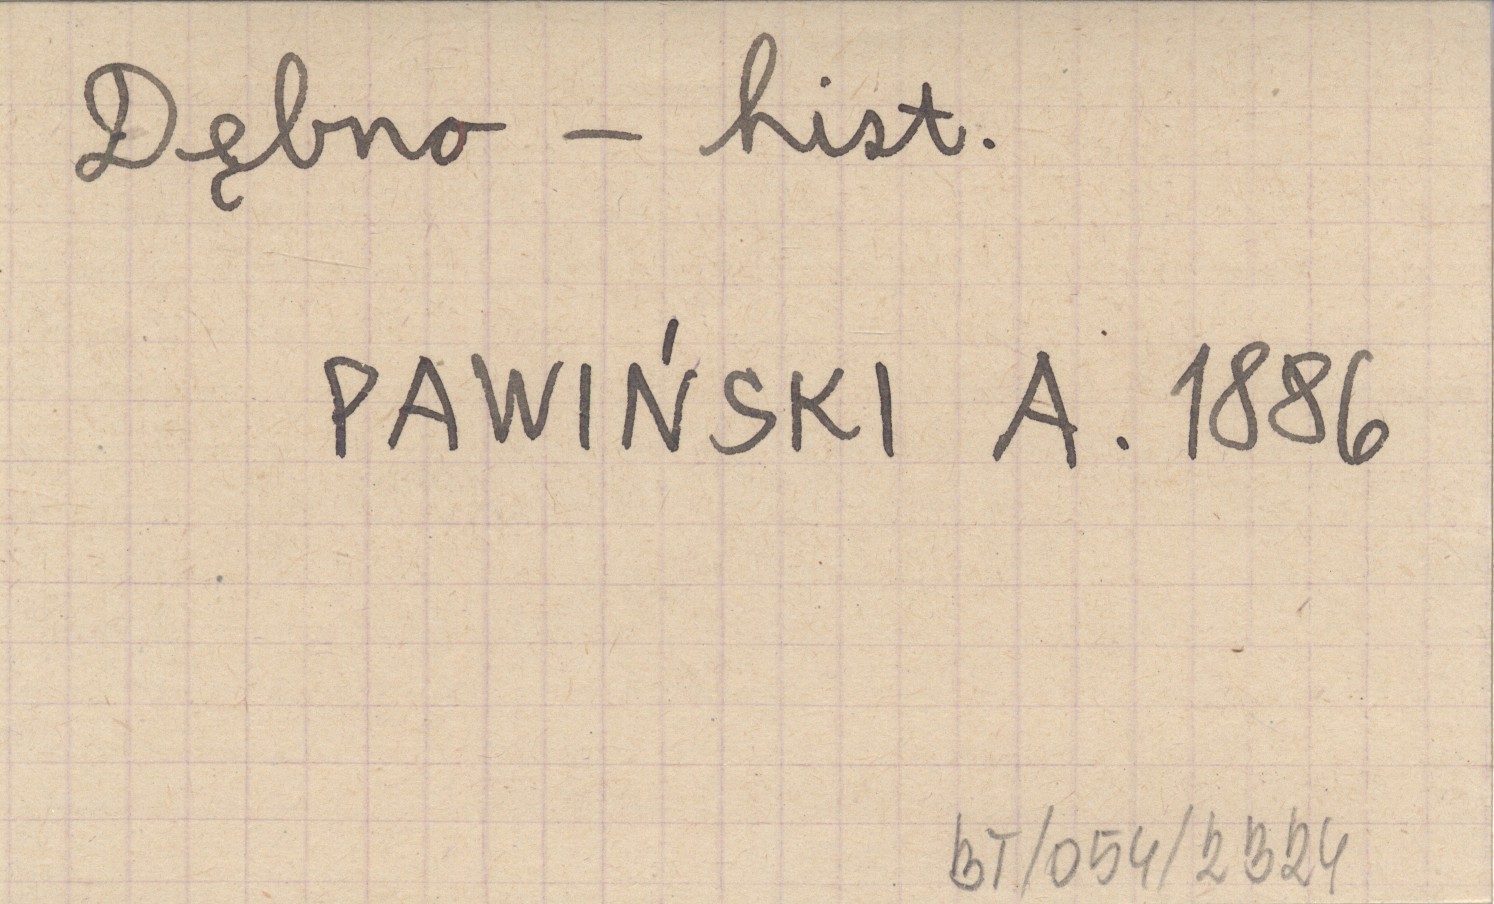 Dębno – hist.
PAWIŃSKI A. 1886
BT/054/2324